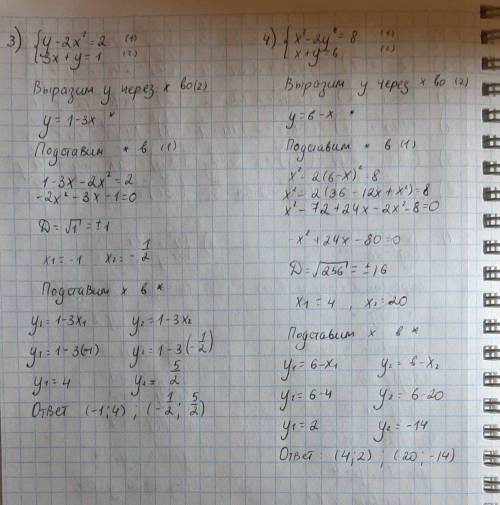 3) { y - 2x² = 2 (1)
3x + y = 1 (2)
Выразим y через x во (2)
y = 1-3x *
Подставим * в (1)
1 - 3x - 2x² = 2
-2x² - 3x - 1 = 0
D = √1 = ±1
x₁ = -1 x₂ = -1/2
Подставим x в *
y₁ = 1-3x₁ y₂ = 1-3x₂
y₁ = 1-3(-1) y₂ = 1-3(-1/2)
y₁ = 4 y₂ = 5/2
Ответ (-1; 4) ; (-1/2; 5/2)
4) { x² - 2y² = 8 (1)
x + y = 6 (2)
Выразим y через x во (2)
y = 6 - x *
Подставим * в (1)
x² - 2(6-x)² = 8
x² - 2(36 - 12x + x²) = 8
x² - 72 + 24x - 2x² - 8 = 0
-x² + 24x - 80 = 0
D = √256 = ±16
x₁ = 4 , x₂ = 20
Подставим x в *
y₁ = 6-x₁ y₂ = 6-x₂
y₁ = 6-4 y₂ = 6-20
y₁ = 2 y₂ = -14
Ответ: (4; 2) ; (20; -14)